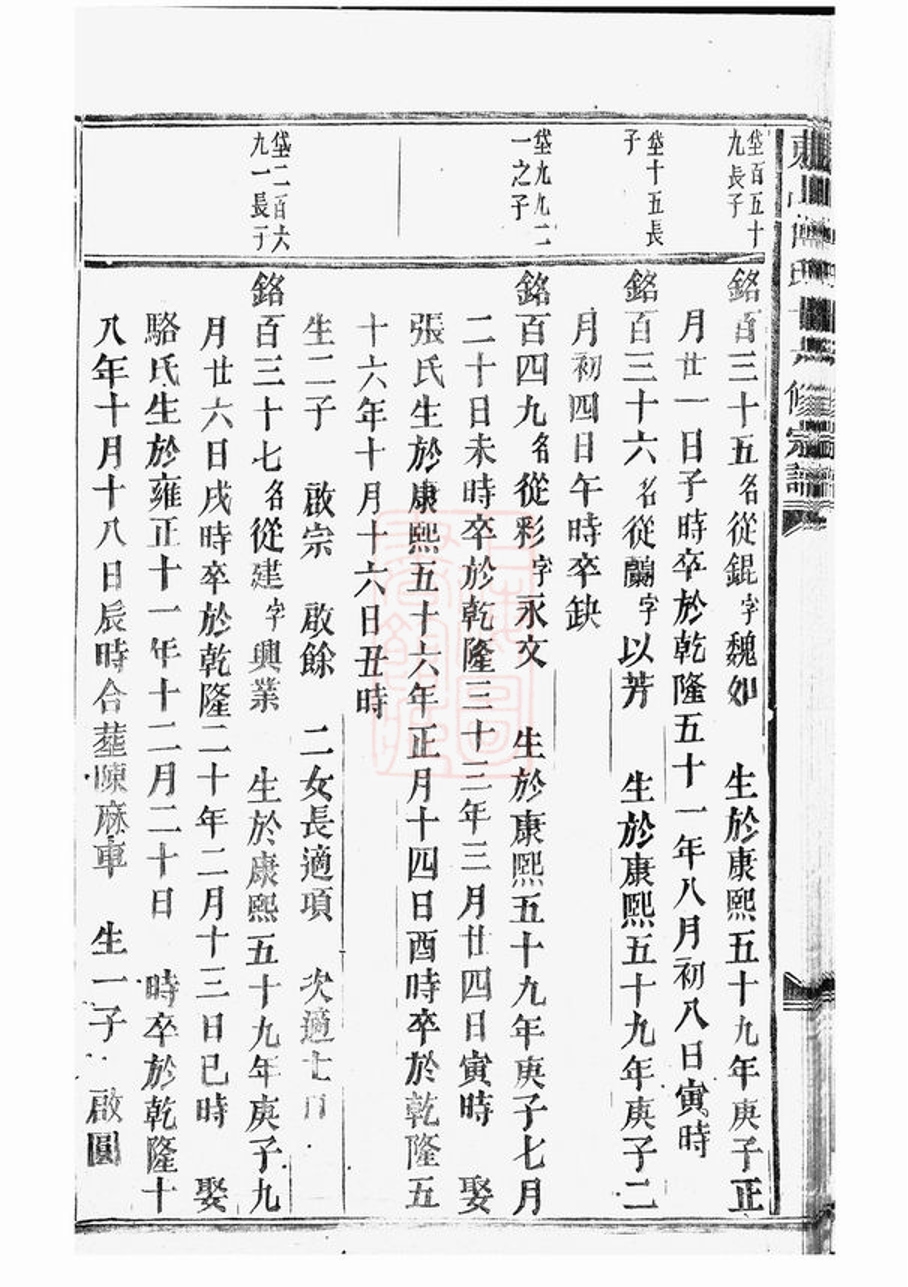 修宗譜
垈百五十
九長子
銘百三十五名從錕字魏如 生於康熙五十九年庚子正
月廿一日子時卒於乾隆五十一年八月初八日寅時
垈十五長
子
銘百三十六名從鸝字以芳 生於康熙五十九年庚子二
月初四日午時卒缺
垈九九二
一之子
銘百四九名從彩字永文 生於康熙五十九年庚子七月
二十日未時卒於乾隆三十三年三月廿四日寅時 娶
張氏生於康熙五十六年正月十四日酉時卒於乾隆五
十六年十月十六日丑時
生二子 啟宗 啟餘 二女長適項 次適
垈二百六
九一長子
銘百三十七名從建字興業 生於康熙五十九年庚子九
月廿六日戌時卒於乾隆二十年二月十三日巳時 娶
駱氏生於雍正十一年十二月二十日 時卒於乾隆十
八年十月十八日辰時合塟陳麻車 生一子 啟圓